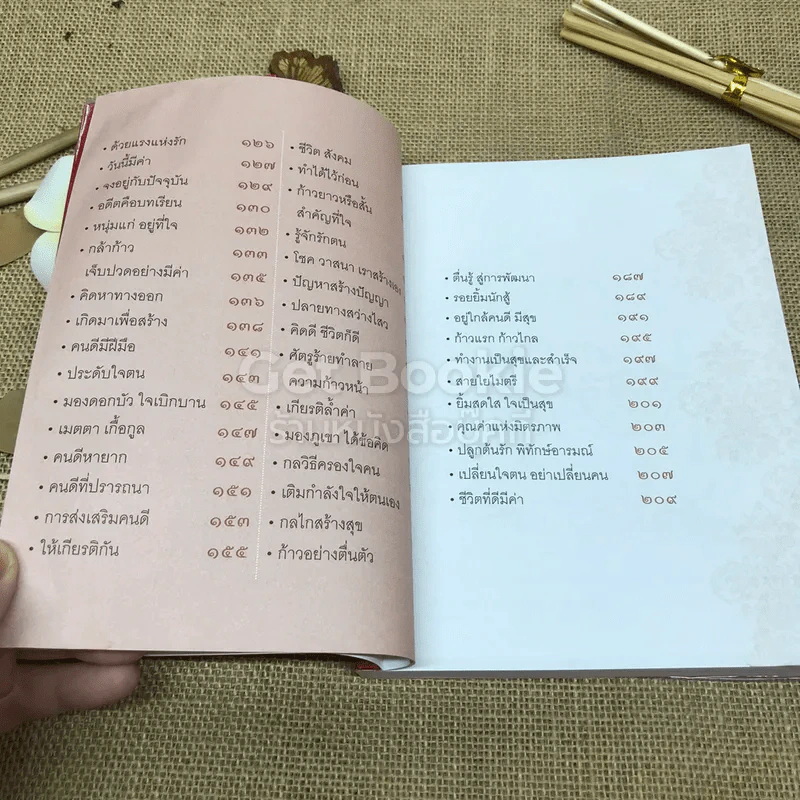 • ด้วยแรงแห่งรัก ๑๒๖
• วันนี้มีค่า ๑๒๗
• จงอยู่กับปัจจุบัน ๑๒๙
• อดีตคือบทเรียน ๑๓๐
• หนุ่มแก่ อยู่ที่ใจ ๑๓๒
• กล้าก้าว ๑๓๓
เจ็บปวดอย่างมีค่า ๑๓๕
• คิดหาทางออก ๑๓๖
• เกิดมาเพื่อสร้าง ๑๓๘
• คนดีมีฝีมือ ๑๔๑
• ประดับใจตน ๑๔๓
• มองดอกบัว ใจเบิกบาน ๑๔๕
• เมตตา เกื้อกูล ๑๔๗
• คนดีหายาก ๑๔๙
• คนดีที่ปรารถนา ๑๕๑
• การส่งเสริมคนดี ๑๕๓
• ให้เกียรติกัน ๑๕๕
• ชีวิต สังคม
• ทำได้ไว้ก่อน
• ก้าวยาวหรือสั้น
สำคัญที่ใจ
• รู้จักรักตน
• โชค วาสนา เราสร้างเอง
• ปัญหาสร้างปัญญา
• ปลายทางสว่างไสว
• คิดดี ชีวิตก็ดี
• ศัตรูร้ายทำลาย
ความก้าวหน้า
• เกียรติล้ำค่า
• มองภูเขา ได้ข้อคิด
• กลวิธีครองใจคน
• เติมกำลังใจให้ตนเอง
• กลไกสร้างสุข
• ก้าวอย่างตื่นตัว
• ตื่นรู้ สู่การพัฒนา ๑๘๗
• รอยยิ้มนักสู้ ๑๘๙
• อยู่ใกล้คนดี มีสุข ๑๙๑
• ก้าวแรก ก้าวไกล ๑๙๕
• ทำงานเป็นสุขและสำเร็จ ๑๙๗
• สายใยไมตรี ๑๙๙
• ยิ้มสดใส ใจเป็นสุข ๒๐๑
• คุณค่าแห่งมิตรภาพ ๒๐๓
• ปลูกต้นรัก พิทักษ์อารมณ์ ๒๐๕
• เปลี่ยนใจตน อย่าเปลี่ยนคน ๒๐๗
• ชีวิตที่ดีมีค่า ๒๐๙
Get Bookie
ร้านหนังสือบุ๊คกี้